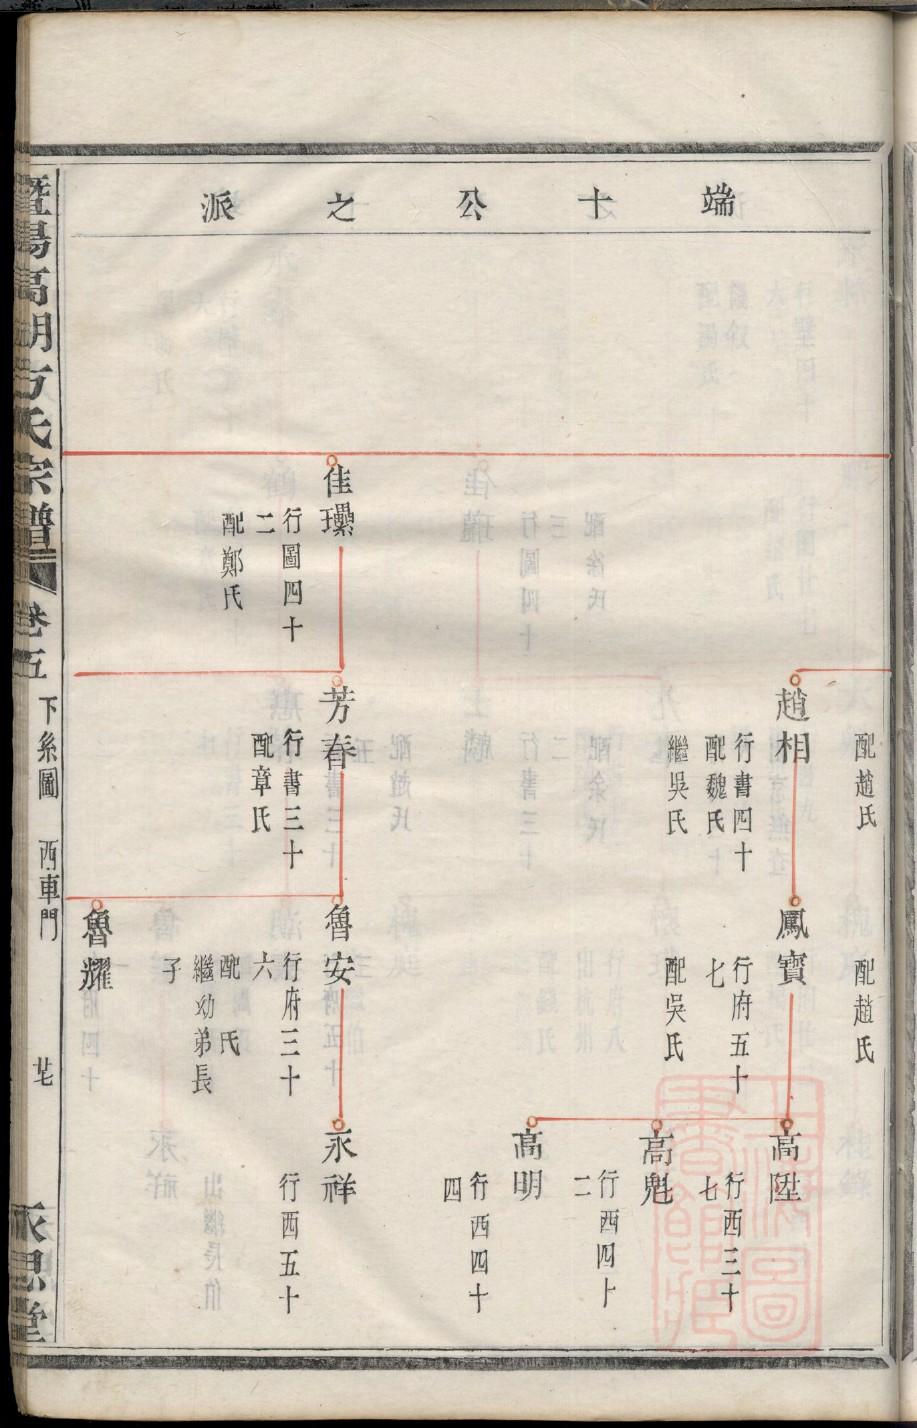 端十公之派
配趙氏
配趙氏
趙相
行書四十
配魏氏
繼吳氏
鳳寶
行府五十
七
配吳氏
高陞
行西三十
七
高魁
行西四十
二
高明
行西四十
四
佳瓅
行圖四十
二
配鄭氏
芳春
行書三十
配章氏
魯安
行府三十
六
配 氏
繼幼弟長
子
永祥
行西五十
魯耀
暨陽高湖方氏宗譜
卷五
下系圖 西車門
廿七
永思堂